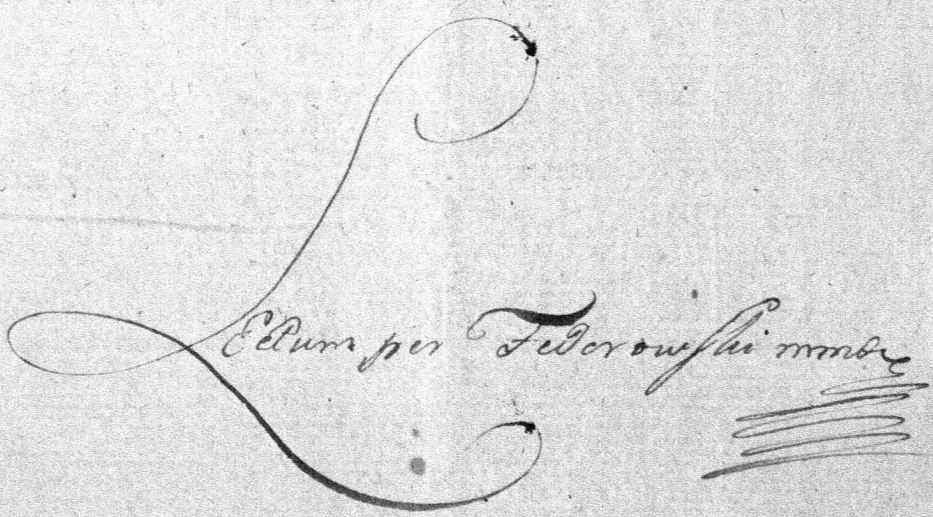 LEctum per Federowski mmp